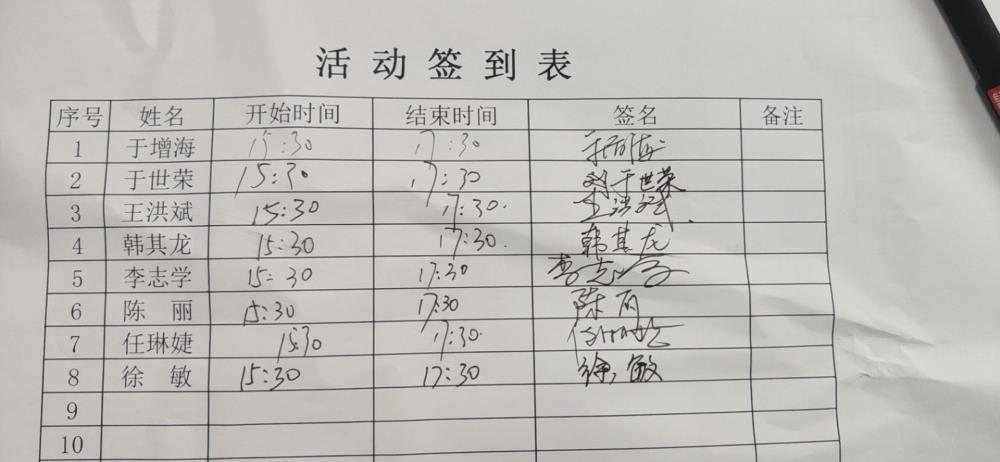 活动签到表
序号 姓名 开始时间 结束时间 签名 备注
1 于增海 15:30 17:30 于增海
2 于世荣 15:30 17:30 刘于世荣
3 王洪斌 15:30 17:30. 王洪斌
4 韩其龙 15:30 17:30. 韩其龙
5 李志学 15:30 17:30 李志学
6 陈 丽 15:30 17:30 陈丽
7 任琳婕 1530 17:30.
8 徐 敏 15:30 17:30 徐敏
9
10